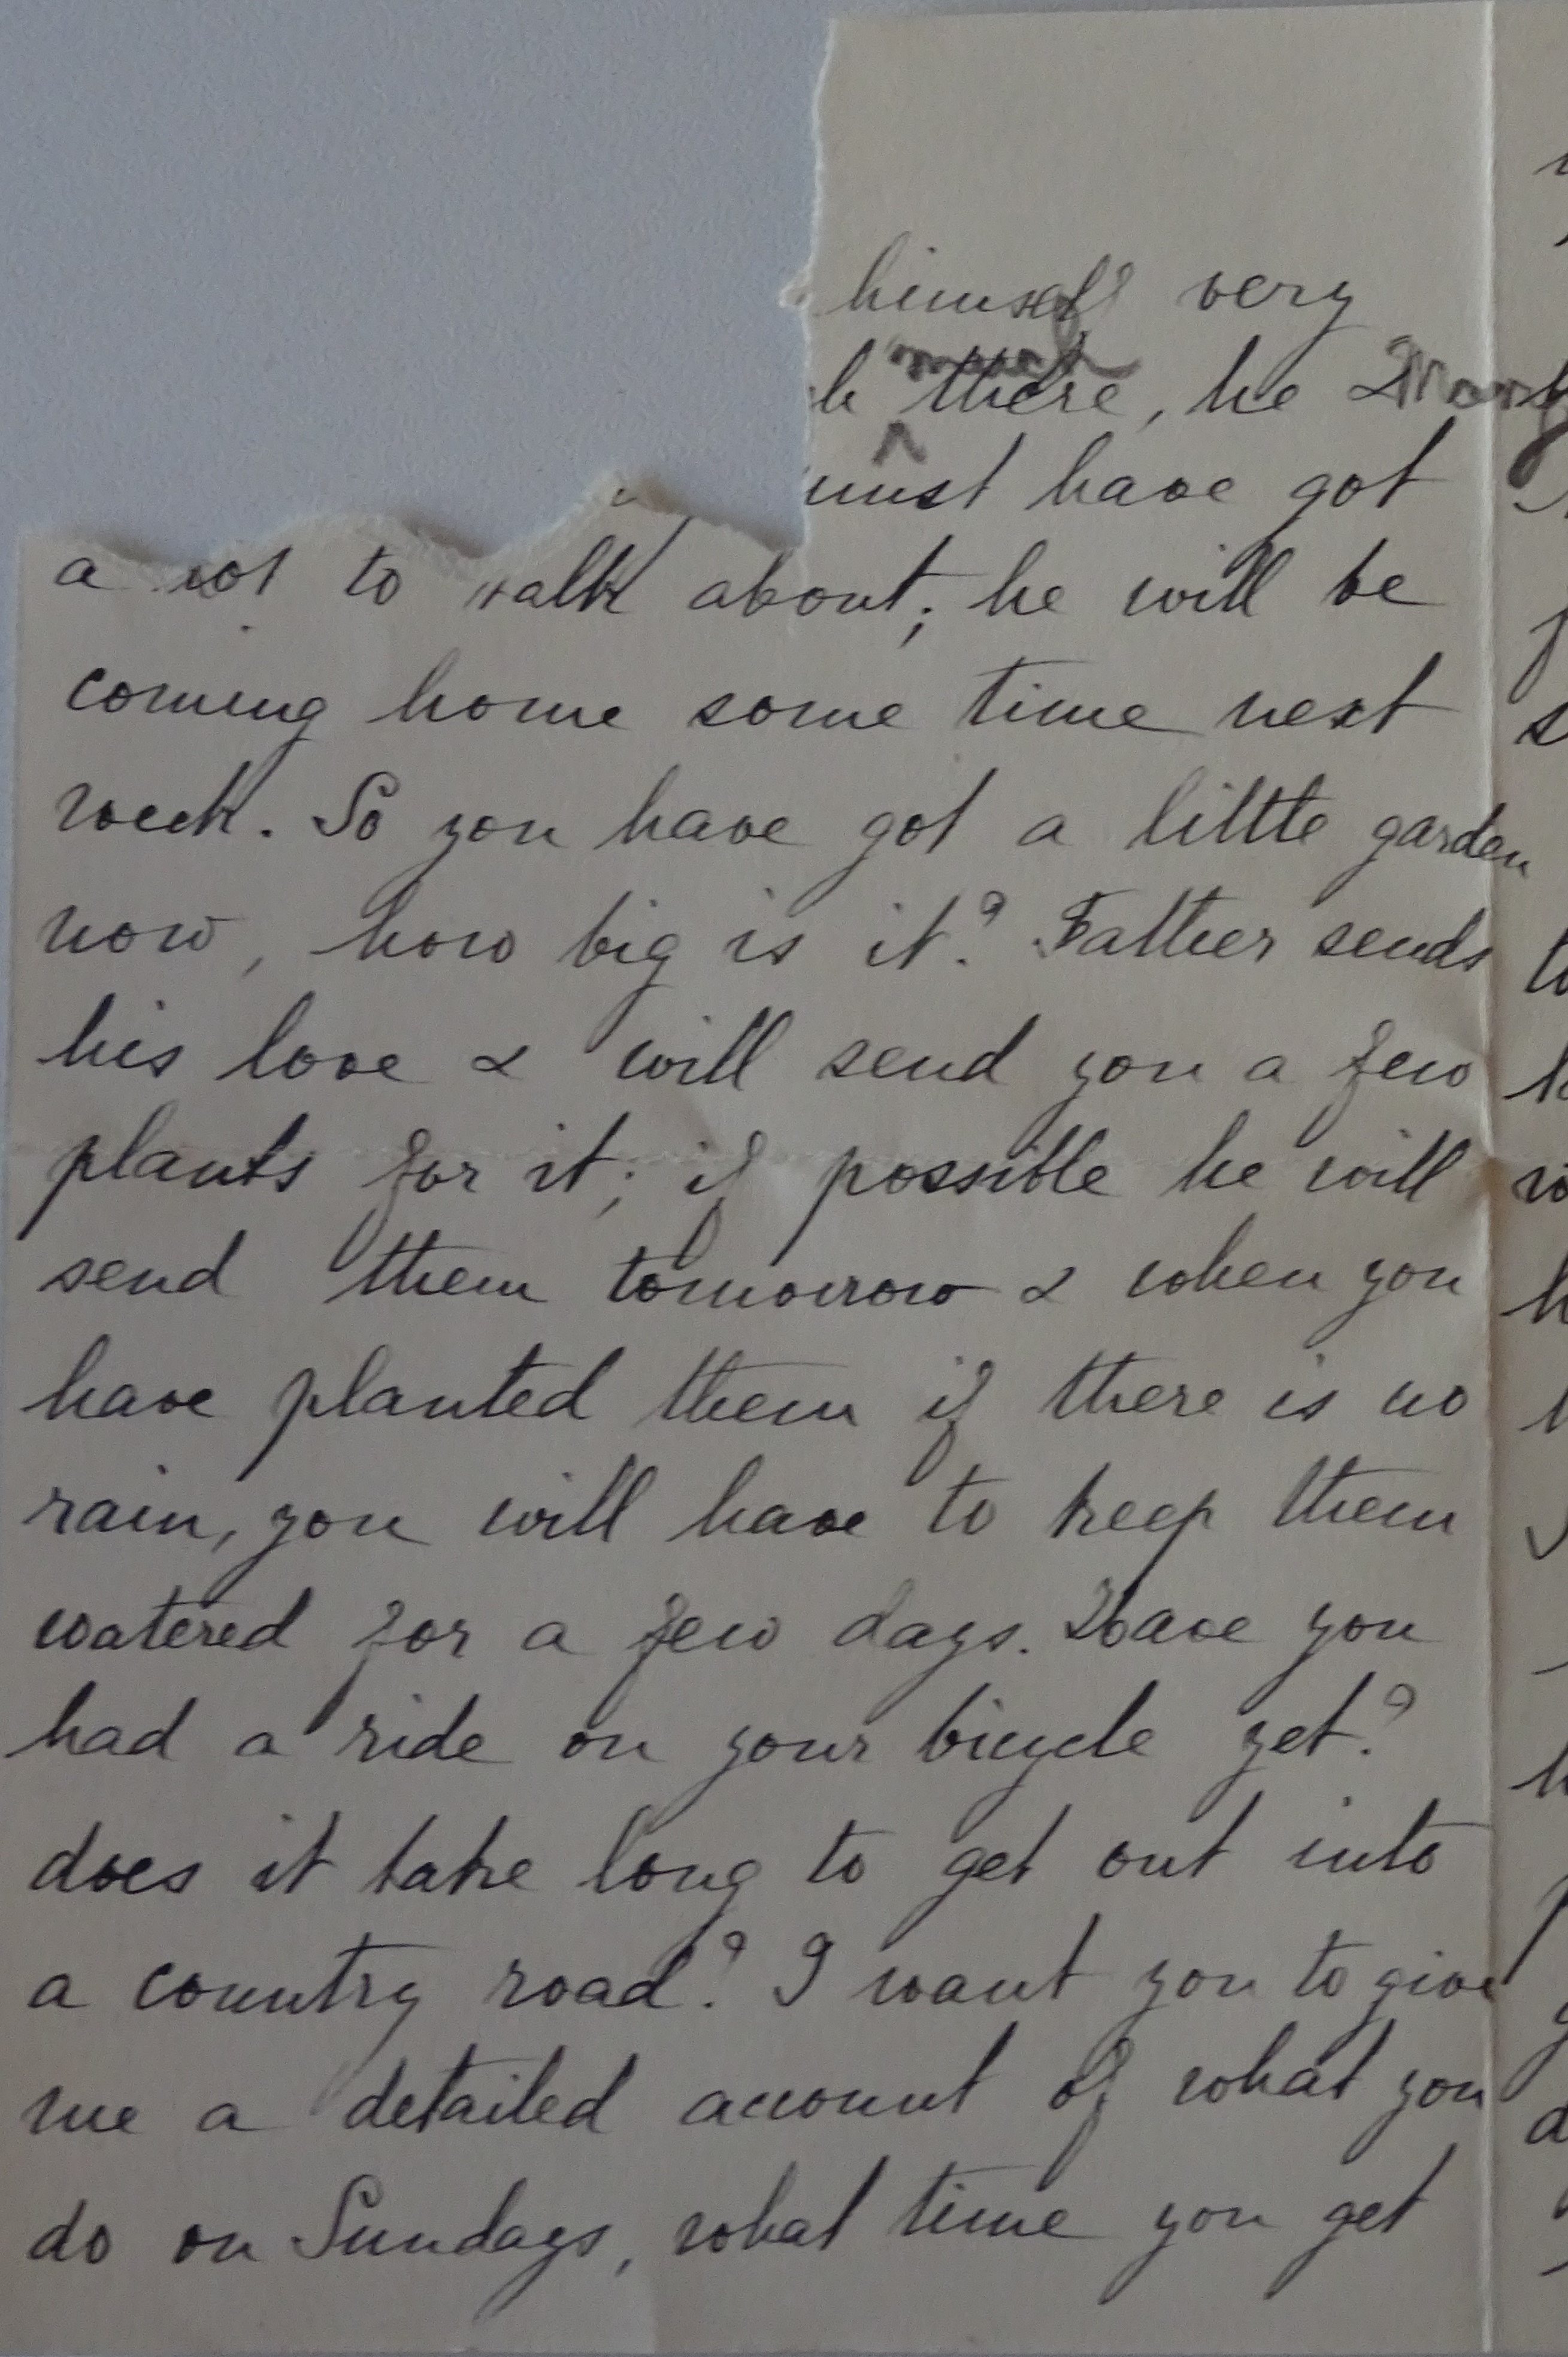 himself very
there, he & Mary
must have got
a lot to talk about; he will be
coming home some time next
week. So you have got a little garden
now, how big is it? Father sends
his love & will send you a few
plants for it; if possible he will
send them tomorrow & when you
have planted them if there is no
rain, you will have to keep them
watered for a few days. Have you
had a ride on your bicycle yet?
does it take long to get out into
a country road? I want you to give
me a detailed account of what you
do on Sundays, what time you get